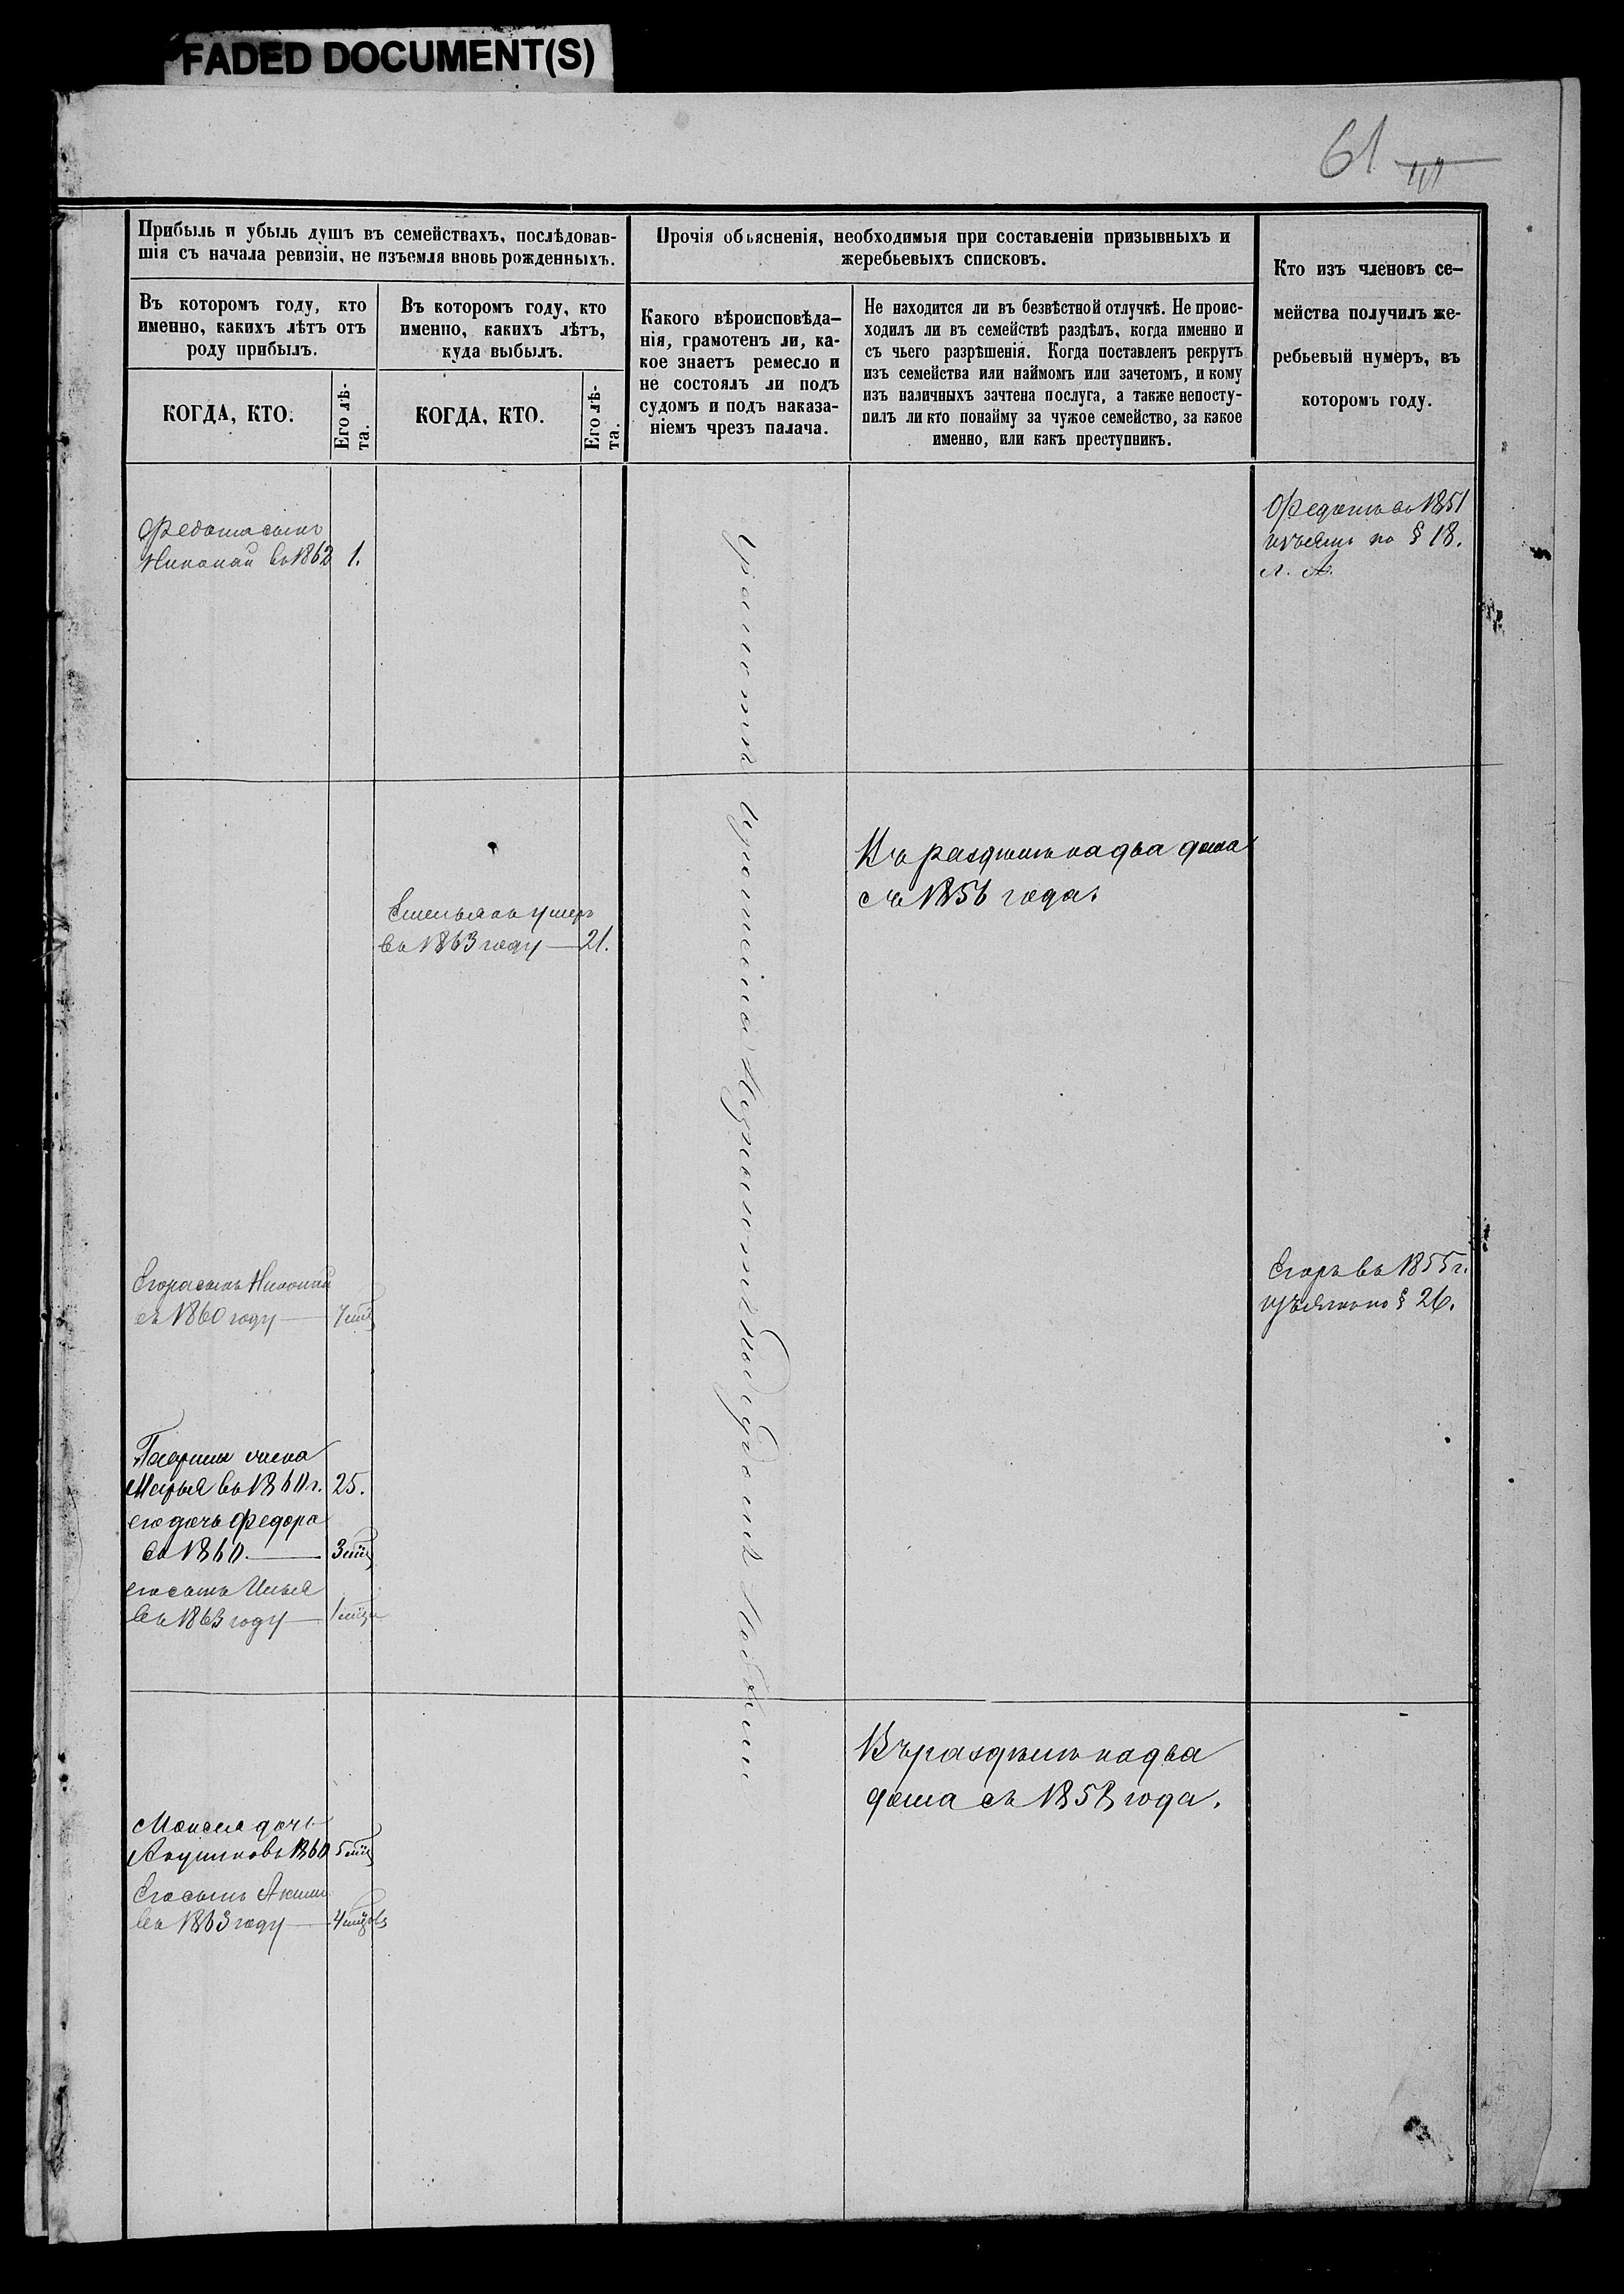 FADED DOCUMENT(S)
61
Прибыль и убыль душъ въ семействахъ, послѣдовав-
шія съ начала ревизіи, не изъемля вновь рожденныхъ.
Въ которомъ году, кто
именно, какихъ лѣтъ отъ
роду прибылъ.
КОГДА, КТО.
Его лѣ-
та.
Въ которомъ году, кто
именно, какихъ лѣтъ,
куда выбылъ.
КОГДА, КТО.
Его лѣ-
та.
Прочія объясненія, необходимыя при составленіи призывныхъ и
жеребьевыхъ списковъ.
Какого вѣроисповѣда-
нія, грамотенъ ли, ка-
кое знаетъ ремесло и
не состоялъ ли подъ
судомъ и подъ наказа-
ніемъ чрезъ палача.
Не находится ли въ безвѣстной отлучкѣ. Не проис-
ходилъ ли въ семействѣ раздѣлъ, когда именно и
съ чьего разрѣшенія. Когда поставленъ рекрутъ
изъ семейства или наймомъ или зачетомъ, и кому
изъ наличныхъ зачтена послуга, а также непосту-
пилъ ли кто понайму за чужое семейство, за какое
именно, или какъ преступникъ.
Кто изъ членовъ се-
мейства получилъ же-
ребьевый нумеръ, въ
которомъ году.
Федота сынъ
Николай въ 1862 1.
Федотъ въ 1851
изъятъ по § 18.
Въ раздѣлѣ на два дома
съ 1856 года.
Емельянъ умеръ
въ 1863 году — 21.
Егора сынъ Николай
въ 1860 году —
Егоръ въ 1855 г.
изъятъ по § 26.
Гаврилы жена
Марья въ 1860 г. 25.
его дочь Федора
въ 1860. —
его сынъ Илья
въ 1863 году —
Въ раздѣлѣ на два
дома съ 1858 года.
дочь
1860
Его сынъ
въ 1863 году —